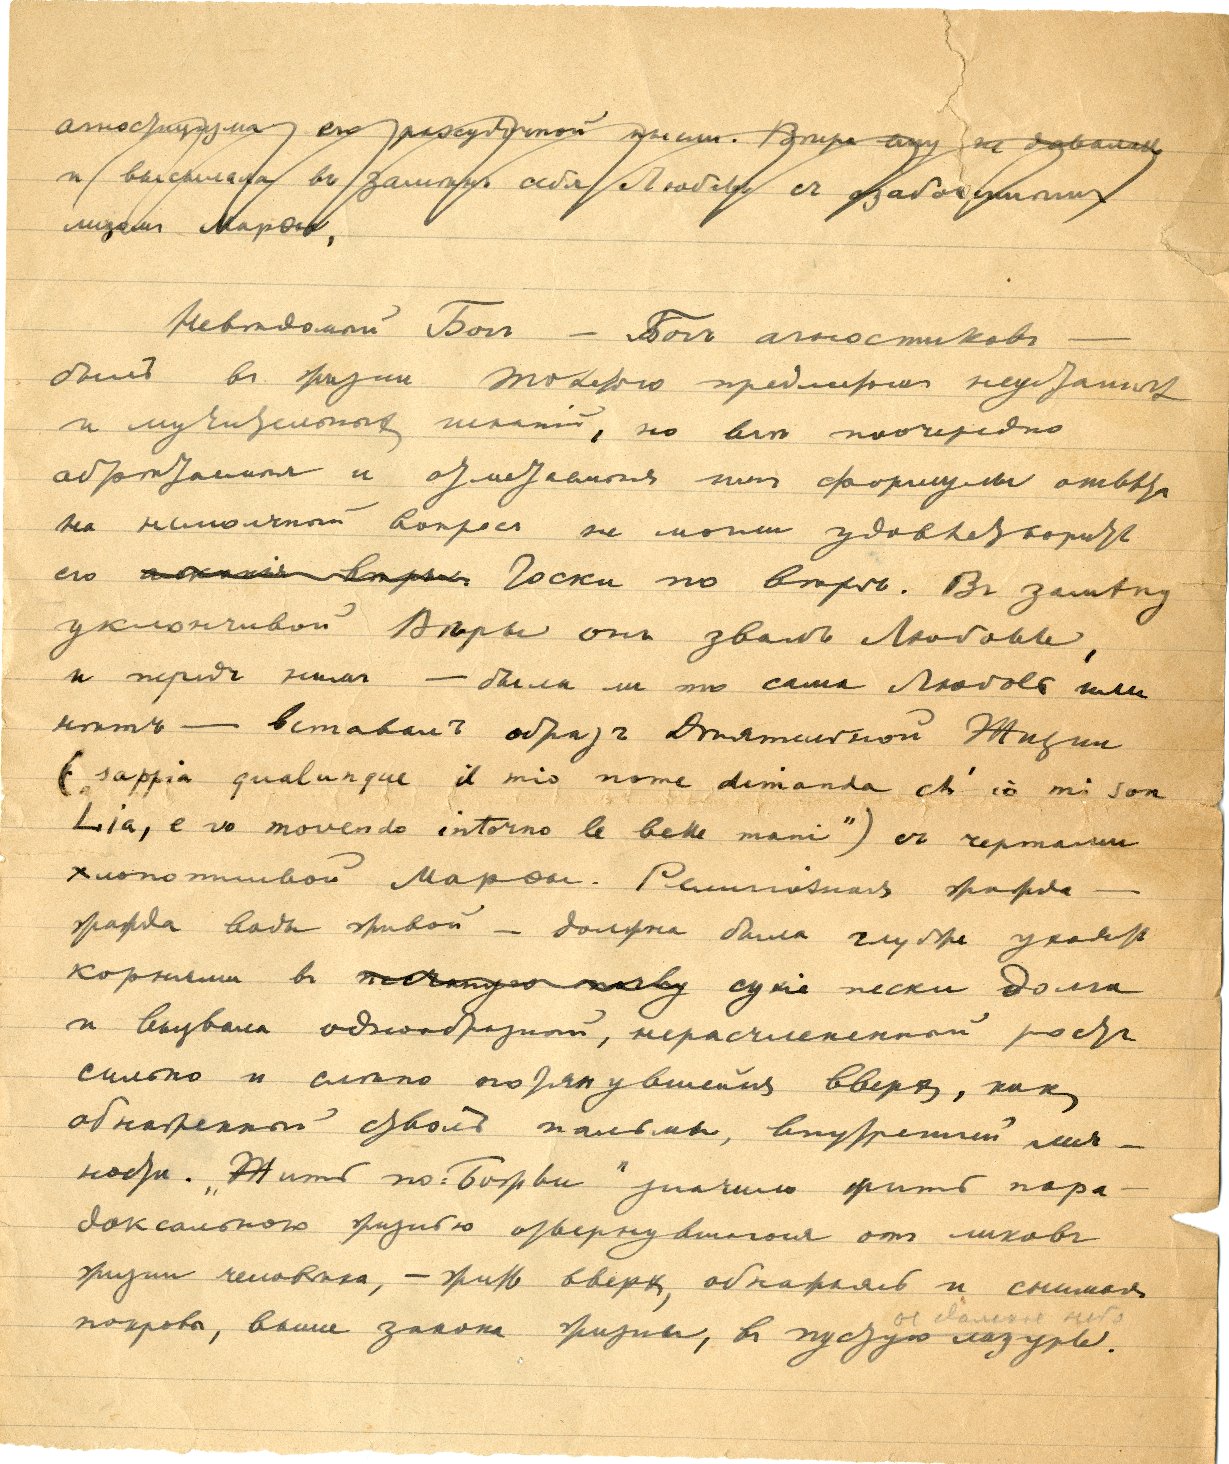 агностицизма его разсудочной мысли. Вѣра ему не давалась
и высылала въ замѣнъ себя Любовь съ озабоченнымъ
лицомъ Марѳы,
Невѣдомый Богъ — Богъ агностиковъ —
былъ въ жизни Толстого предметомъ неустанныхъ
и мучительныхъ исканій, но всѣ поочередно
обрѣтаемыя и отметаемыя имъ формулы отвѣта
на немолчный вопросъ не могли удовлетворить
его тоски по вѣрѣ. Въ замѣну
уклончивой Вѣры онъ звалъ Любовь,
и передъ нимъ — была ли то сама Любовь или
нѣтъ — вставалъ образъ Дѣятельной Жизни
(„sappia qualunque il mio nome dimanda ch' io mi son
Lia, e vo movendo intorno le belle mani") съ чертами
хлопотливой Марѳы. Религіозная жажда —
жажда воды живой — должна была глубже уходить
корнями въ сухіе пески Долга
и вызвала однообразный, нерасчлененный ростъ
сильно и слѣпо потянувшейся вверхъ, какъ
обнаженный стволъ пальмы, внутренней лич-
ности. „Жить по-Божьи" значило жить пара-
доксальною жизнью отвернувшагося отъ ликовъ
жизни человѣка, — жить вверхъ, обнажая и снимая
покровы, выше закона жизни, въ пустую лазурь.